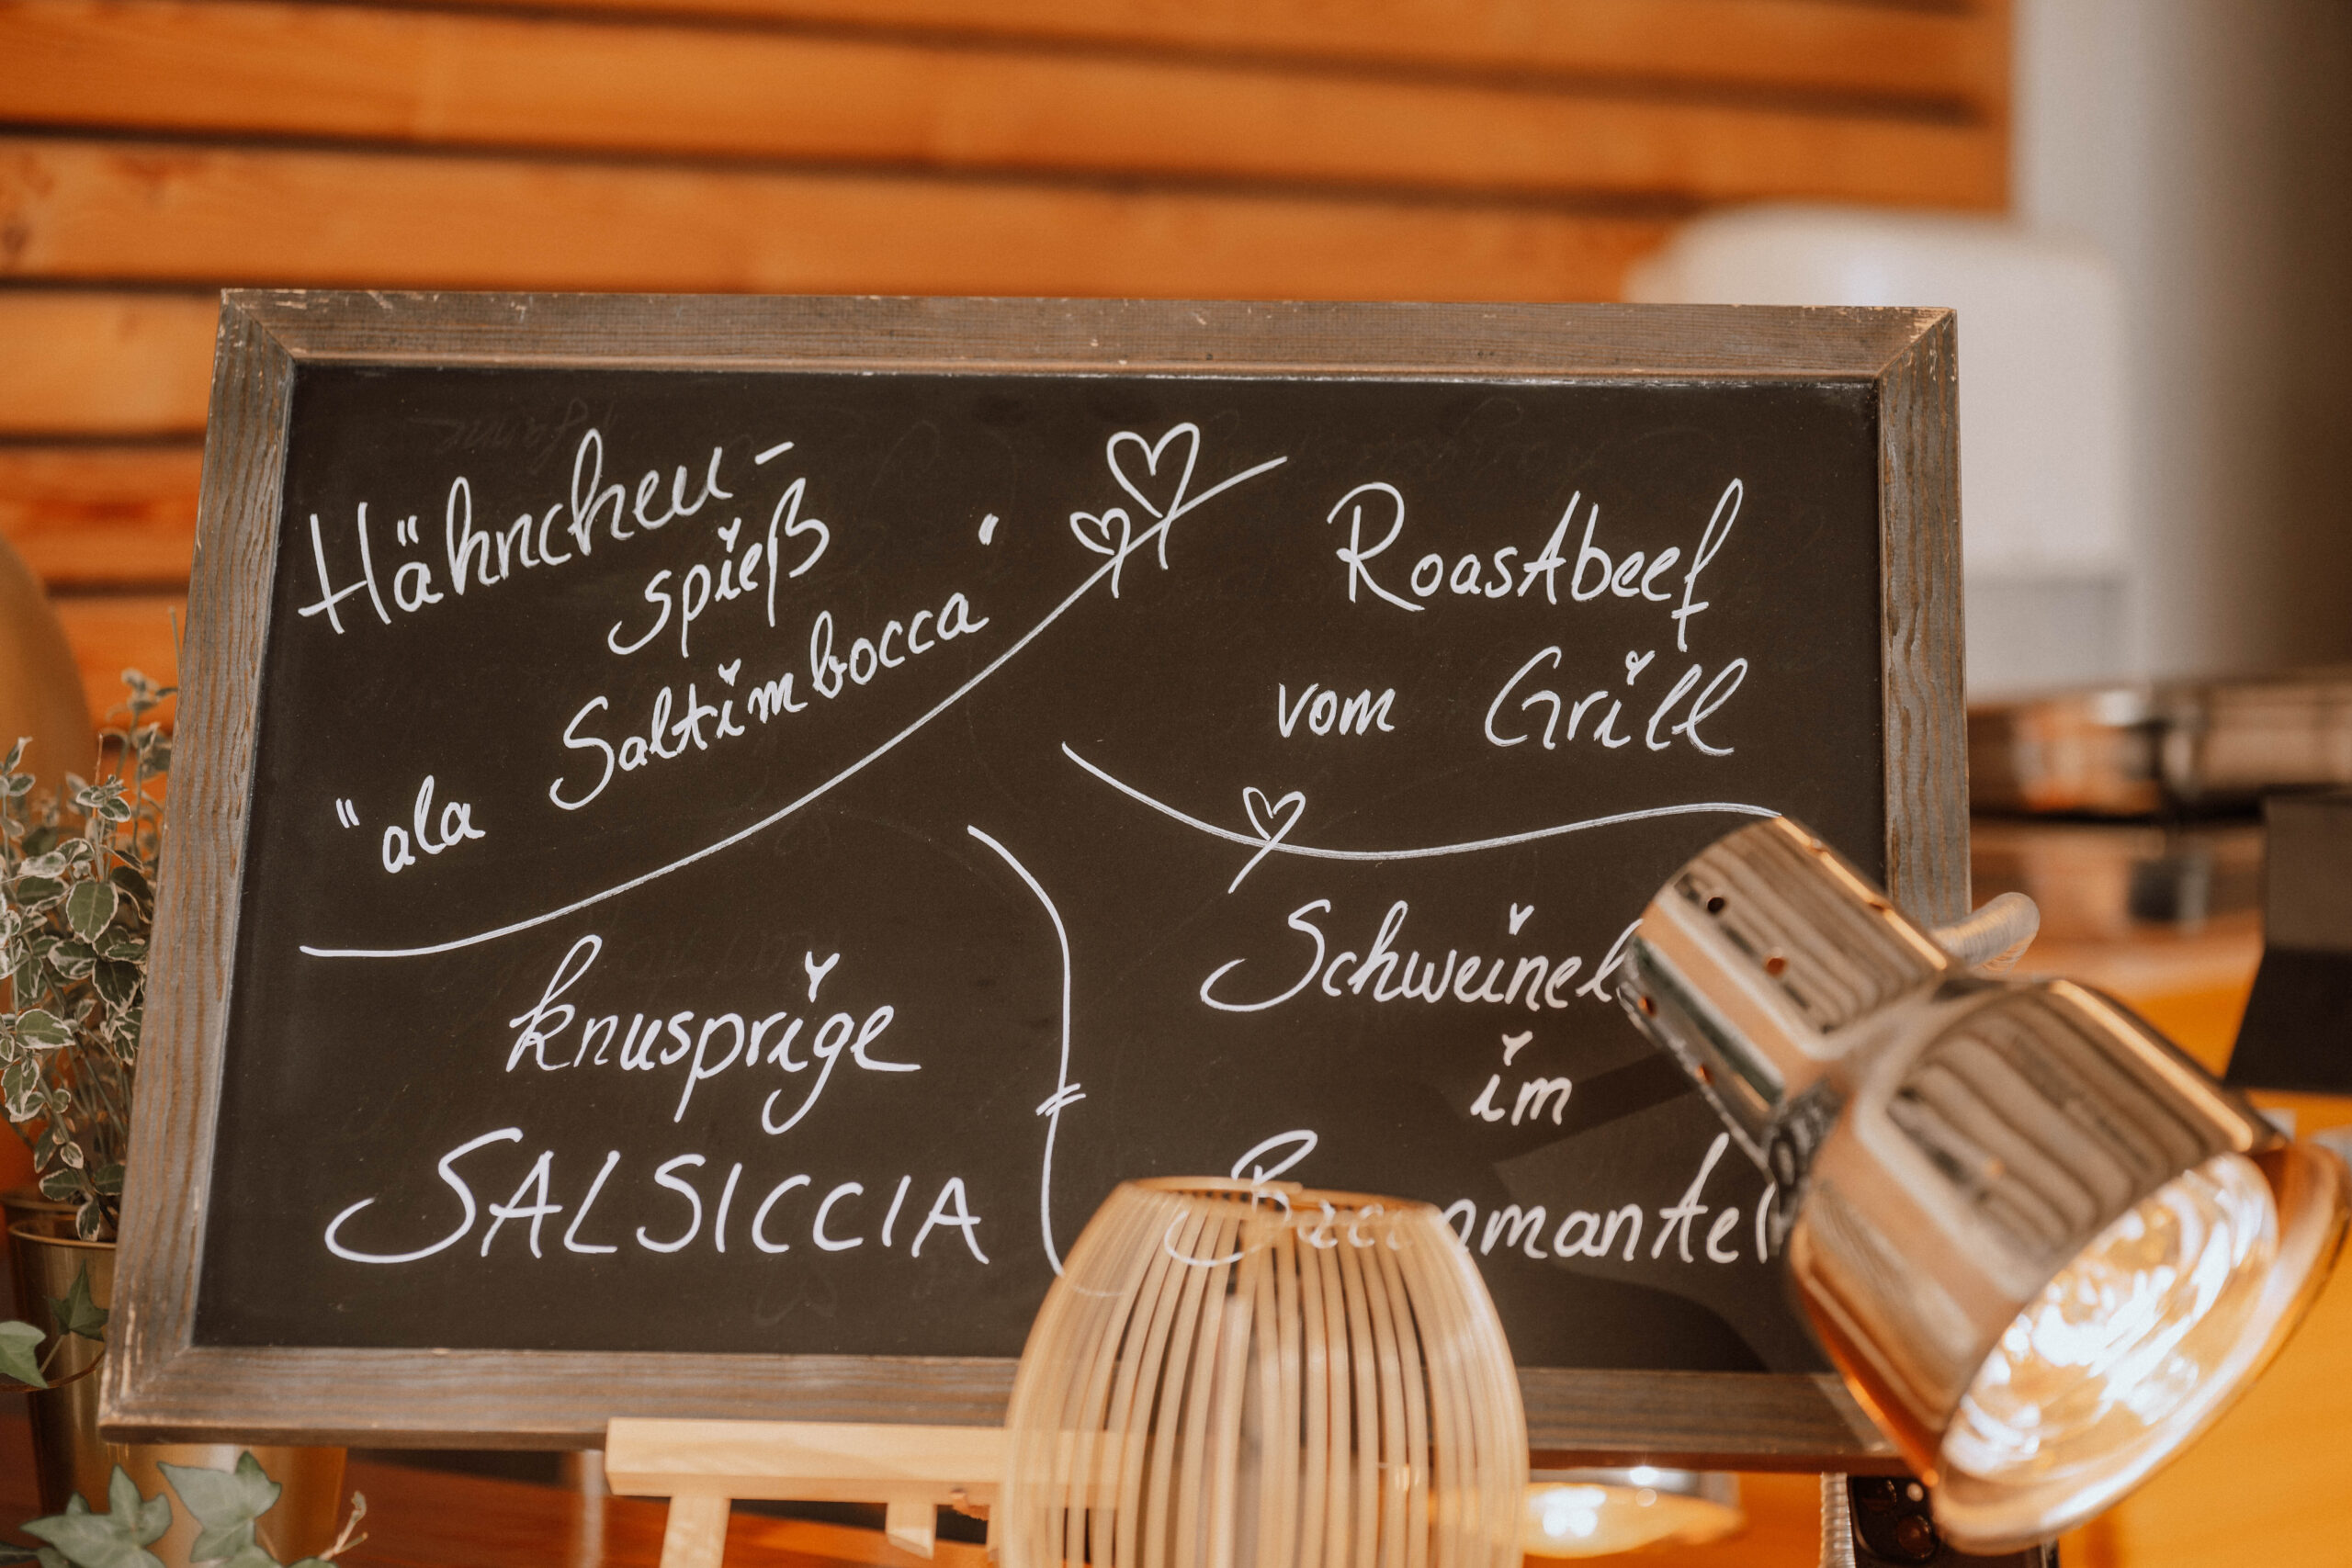 Hähnchen-
spieß
"ala Saltimbocca"
RoasAbeef
vom Grill
knusprige
SALSICCIA
im